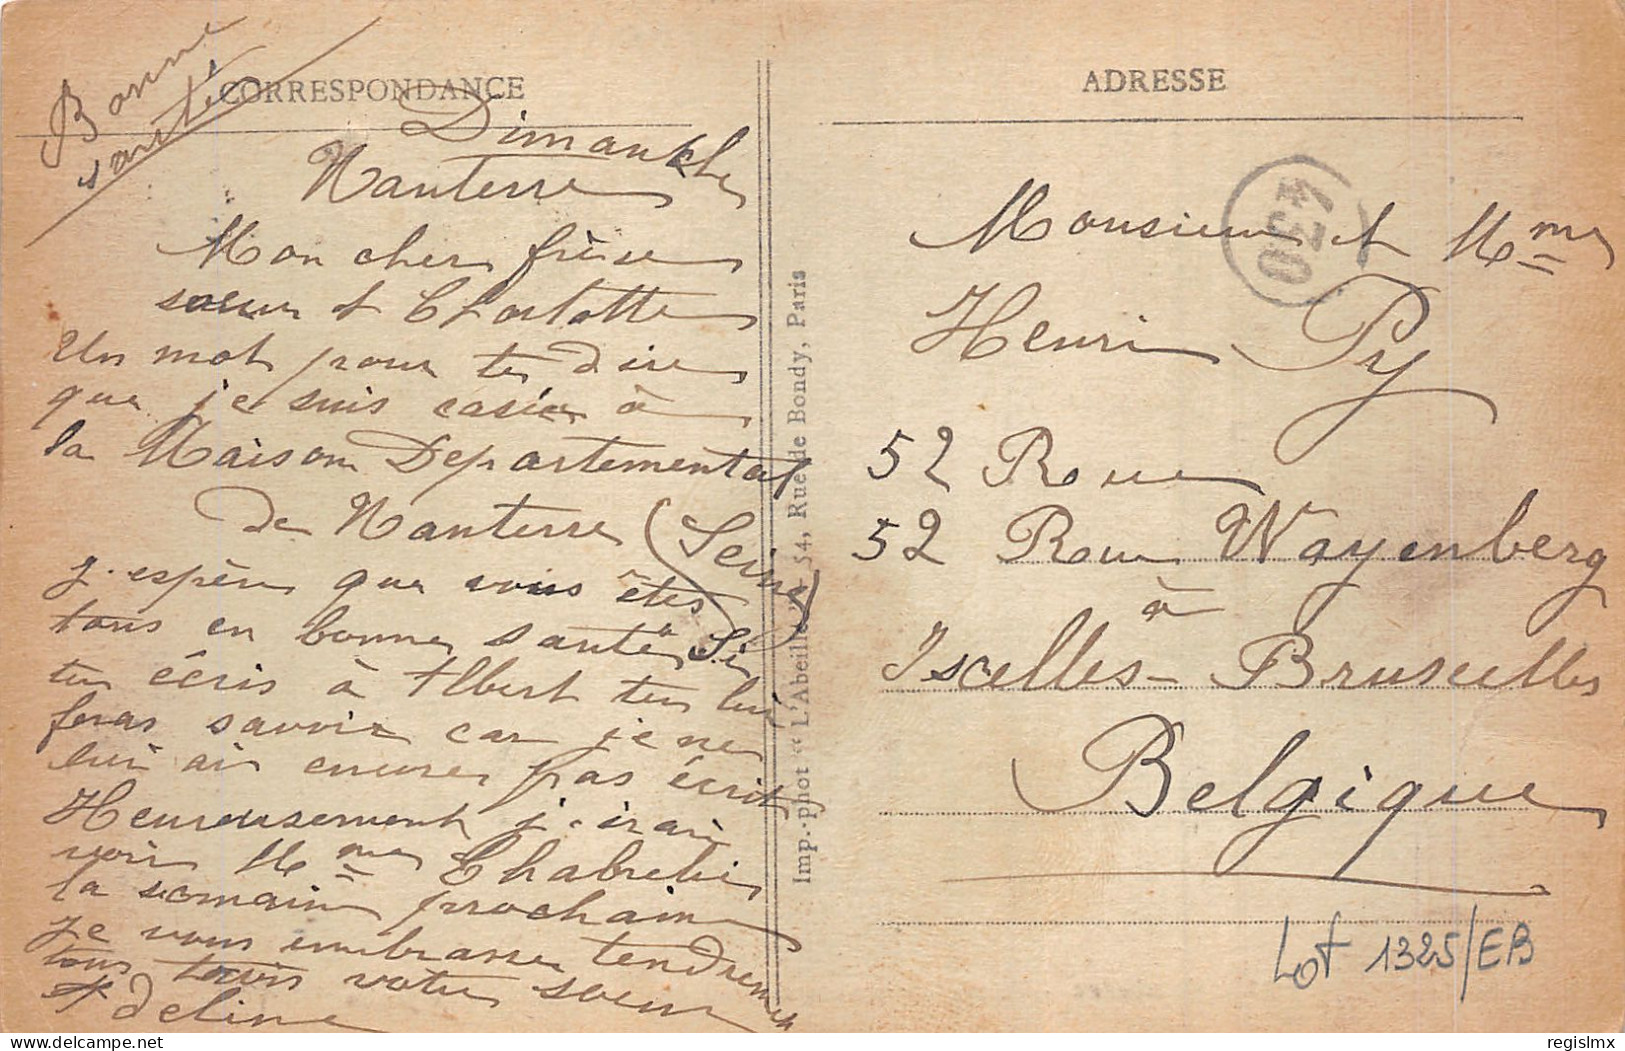 Bonne
santé
CORRESPONDANCE
Dimanche
Nanterre
Mon cher frère
soeur et Charlotte
Un mot pour te dire
que je suis casée à
la Maison Departemental
de Nanterre (Seine)
j'espère que vous êtes
tous en bonne santé Si
tu écris à Albert tu lui
feras savoir car je ne
lui ai encore pas écrit
Heureusement j'irai
voir Mme
la semaine prochaine
Je vous embrasse tendrement
tous trois votre soeur
Adeline
Imp.-phot "L'Abeille", 54, Rue de Bondy, Paris
ADRESSE
430
Monsieur et Mme
Henri Py
52 Rue
52 Rue Wayenberg
à
Ixcelles - Bruxelles
Belgique
Lot 1325/EB
delcampe.net
regislmx